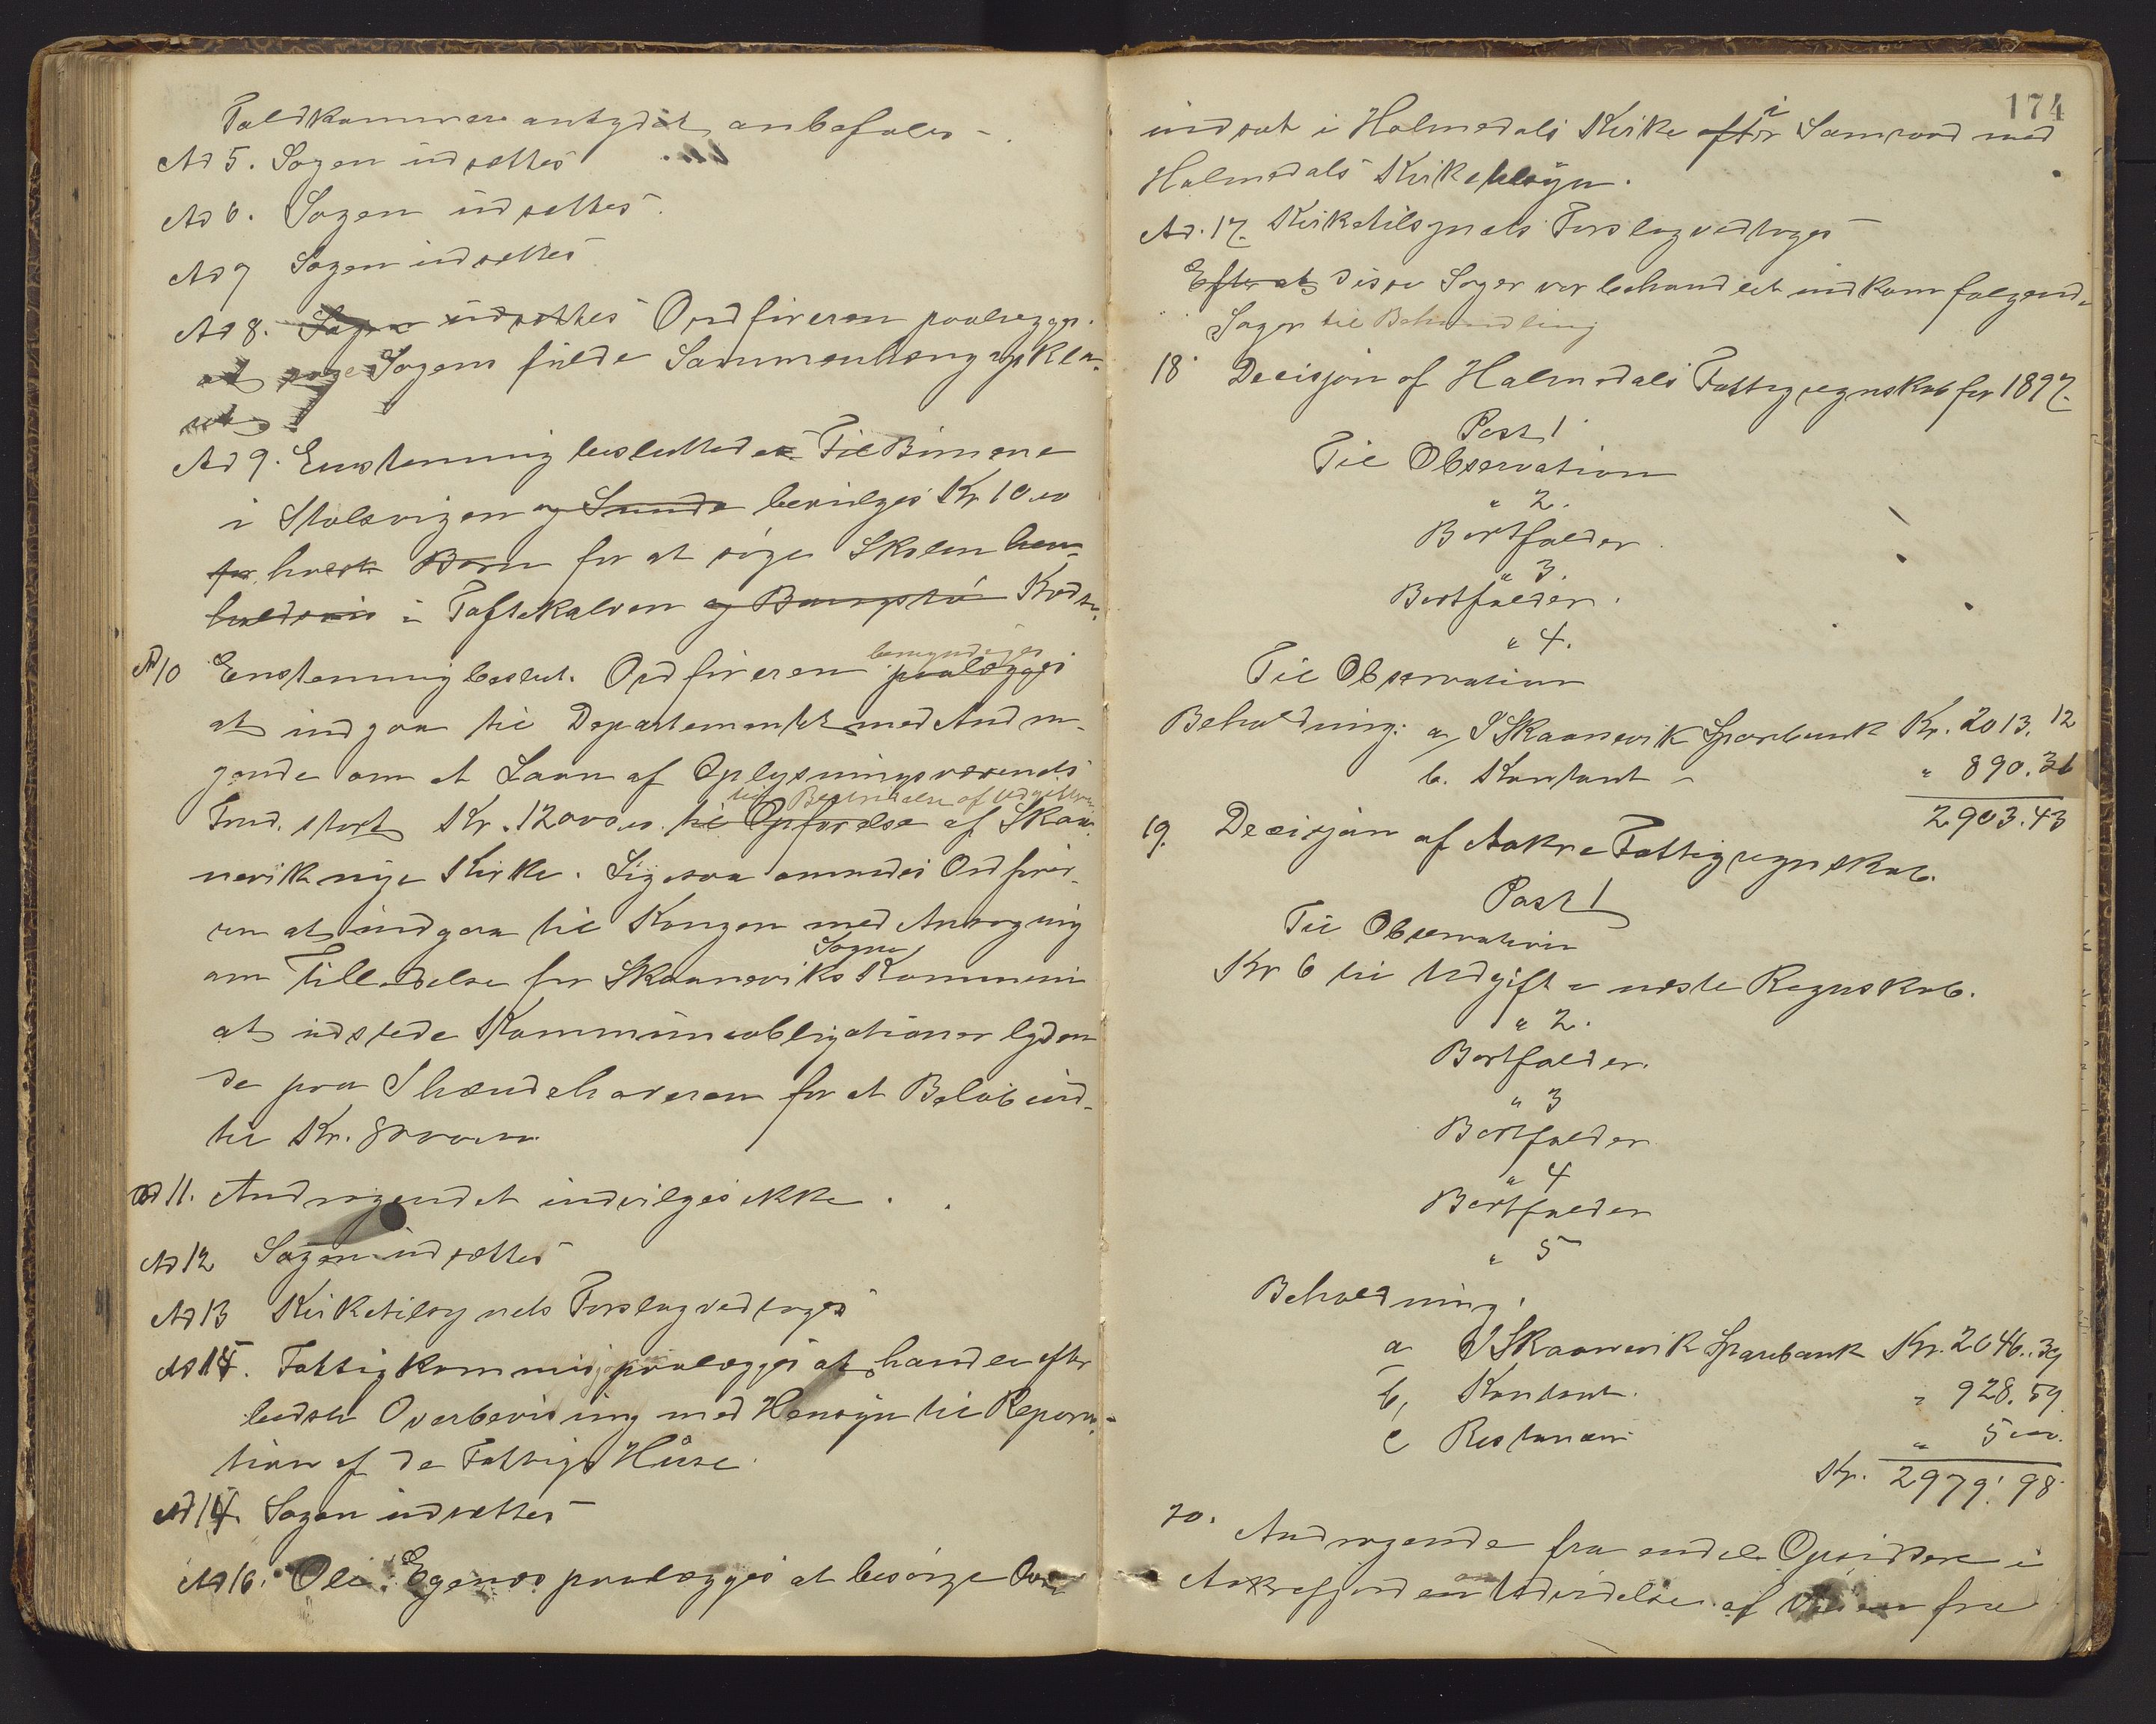 Foldkammeret antydet anbefales.
Ad 5. Sagen udsættes
Ad 6. Sagen udsættes.
Ad 7 Sagen udsættes
Ad 8. Sagen udsættes Ordføreren paalægges
at søge Sagens fulde Sammenhæng opkla-
ret
Ad 9. Enstemmig besluttedes Til Børnene
i Stølsvigen og Sunde bevilges Kr 10.00
for hvert Barn for at søge Skolen hen-
holdsvis i Toftekalven og
Ad 10 Enstemmig beslut. Ordføreren paalægges
bemyndiges
at indgaa til Departementet med Andra-
gende om et Laan af Oplysningsvæsenets
til Bestridelse af Udgifterne
Fond stort Kr. 12000.00 til Opførelse af Skaa-
nevik nye Kirke. Ligesaa anmodes Ordføre-
ren at indgaa til Kongen med Ansøgning
Sogne
om Tilladelse for Skaaneviks Kommune
at udstede Kommuneobligationer lyden
de paa Ihændehaveren for et Beløb ind-
til Kr. 8000.00
ad 11. Andragendet indvilges ikke.
Ad 12 Sagen udsættes
Ad 13 Kirketilsynets Forslag vedtages
Ad 15. Fattigkommisjonen paalægges at handle efter
bedste Overbevisning med Hensyn til Repara-
tion af de Fattiges Huse.
Ad 14. Sagen udsættes
Ad 16. Ole Egenes paalægges at besørge Ovn
174
indsat i Holmedals Kirke efter i Samraad med
Holmedals Kirketilsyn.
Ad. 17. Kirketilsynets Forslag vedtages
Efter at disse Sager var behandlet indkom følgende
Sager til Behandling
18 Decisjon af Holmedals Fattigregnskab for 1897.
Post 1
Til Observation
" 2.
Bortfalder
" 3.
Bortfalder.
" 4.
Til Observation
Beholdning: a, I Skaanevik Sparebank Kr. 2013.12
b. Kontant - " 890.31
2903.43
19. Decisjon af Aakre Fattigregnskab.
Post 1
Til Observation
Kr 6 til Udgift i næste Regnskab.
" 2.
Bortfalder.
" 3
Bortfalder
" 4
Bortfalder
" 5
Beholdning:
a I Skaanevik Sparebank Kr. 2046.39
b, Kontant. " 928.59
c Restancer " 5.00
Kr. 2979.98
20. Andragende fra endel Opsiddere i
Aakrefjorden om Udvidelse af Veien fra